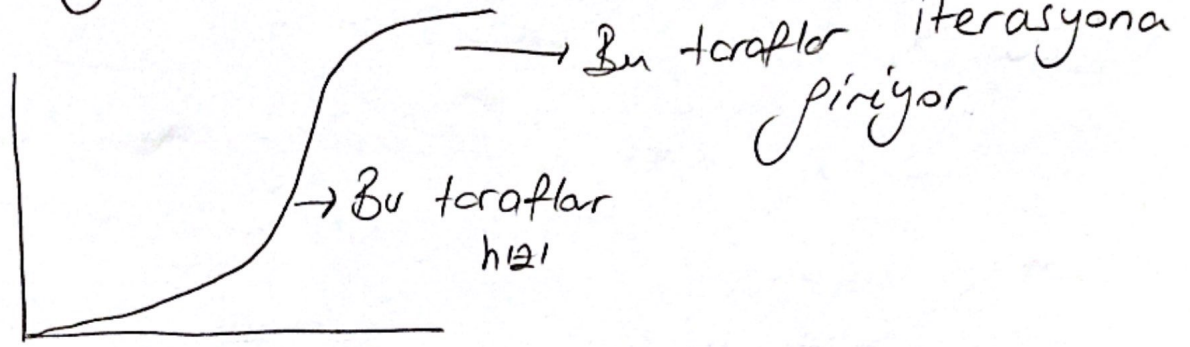 Bu taraflar iterasyona
giriyor
Bu taraflar
hızı